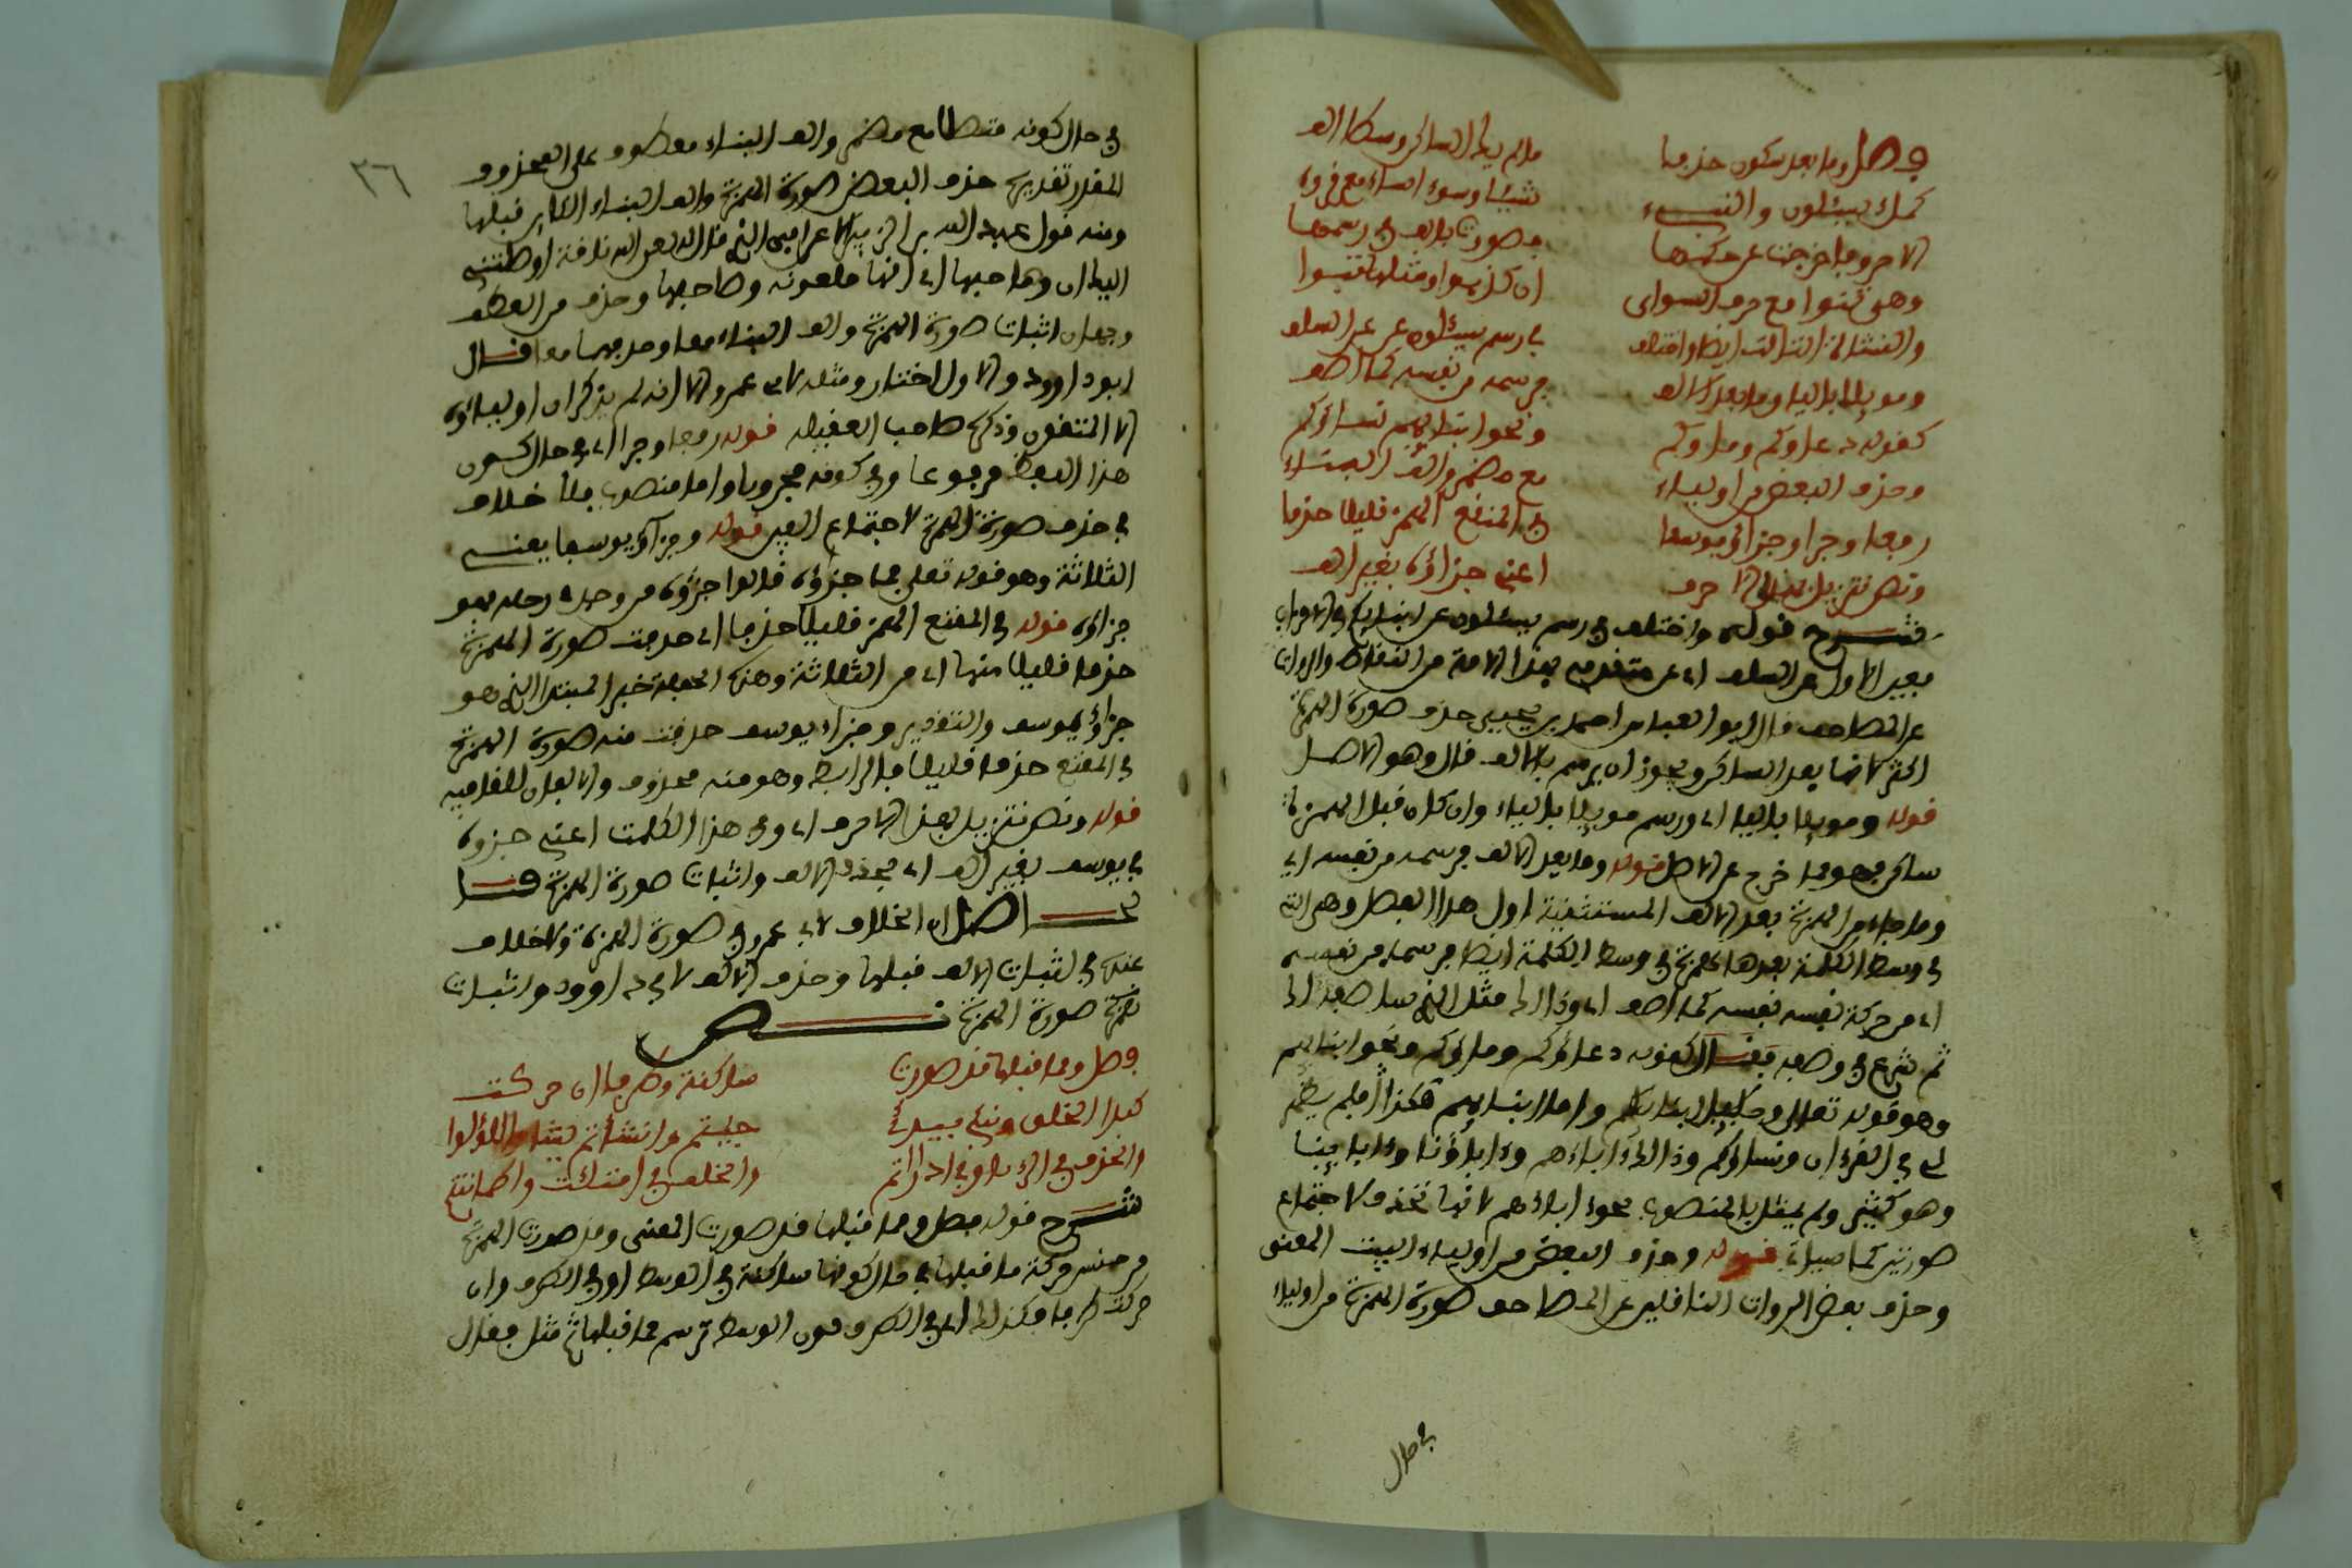 فصل وما بعد سكون حذفا ما لم يك الساكن وسطا الف
كملء يسئلون والنبيء شيئا وسوءا ساء مع قروء
الا حروفا خرجت عن حكمها فصورت بالف في رسمها
وهي تنوأ مع حرف السوأى ان كذبوا ومثلها تبوأ
والنشأة الثلاث ايضا واختلف في رسم يسئلون عن عن السلف
وموئلا باليا وما بعد الالف فرسمه من نفسه كما اصف
كقوله دعاؤكم وماؤكم ونحو ابنائهم نساؤكم
وحذف البعض من اولياء مع مضمر والف البناء
رفعا وجرا وجزاؤ يوسفا في المقنع الهمز قليلا حذفا
ونص تنزيل بهذي الاحرف اعني جزاؤه بغير الف
شرح قوله واختلف في رسم يسئلون عن انبائكم في الاحزاب
بغير الاول عن السلف اي عن متقدمي هذه الامة من النقلة والروات
عن المصاحف قال ابو العباس احمد بن يحيى حذف صورة الهمزة
اكثر لانها بعد الساكن ويجوز ان يرسم بالالف قال وهو الاصل
قوله وموئلا باليا اي ورسم موئلا بالياء وان كان قبل الهمزة
ساكن فهو مما خرج عن الاصل قوله وما بعد الالف فرسمه من نفسه اي
وما جاء من الهمزة بعد الالف المستثنية اول هذا الفصل وهي التي
في وسط الكلمة بعدها همزة في وسط الكلمة ايضا فرسمه من نفسه
اي من حركة نفسه بنفسه كما اصف اي وذالك مثل الذي ساصفه لك
ثم شرع في وصفه فقال كقوله دعاؤكم وماؤكم ونحو ابنائهم
وهو قوله تعالى
في القرءان ونساؤكم وذالك ءاباءهم وءاباؤنا وءابائنا
وهو كثير ولم يمثل بالمنصوب نحو ءاباءهم لانها تحذف لاجتماع
صورتين كما سياتي قوله وحذف البعض من اولياء البيت المعنى
وحذف بعض الروات الناقلين عن المصاحف صورة الهمزة من اولياء
في حال
٣٦
في حال كونه متصلا مع مضمر والف البناء معطوف على المحذوف
المقدر تقديره حذف البعض صورة الهمزة والف البناء الكاين قبلها
ومنه قول عبد الله بن الزبير الاعرابي الذي قال له لعن الله ناقة اوصلتني
اليك ان وصاحبها اي انها ملعونة وصاحبها وحذف من العطف
وجهان اثبات صورة الهمزة والف البناء معا وحذفهما معا قال
ابو داوود والاول اختار ومثله لابي عمرو الا انه لم يذكر ان اولياؤه
الا المتقون وذكره صاحب العقيلة قوله رفعا وجرا اي في حال كون
هذا اللفظ مرفوعا وفي كونه مجرورا واما منصوبا فلا خلاف
في حذف صورة الهمزة لاجتماع الفين قوله وجزاؤ يوسفا يعني
الثلاثة وهو قوله تعلى فما جزؤه قالوا جزؤه من وجد في رحله فهو
جزاؤه قوله في المقنع الهمز قليلا حذفا اي حذفت صورة الهمزة
حذفا قليلا منها اي من الثلاثة وهذه الجملة خبر المبتدا الذي هو
جزاؤ يوسف والتقدير وجزاء يوسف حذفت منه صورة الهمزة
في المقنع حذفا قليلا فالرابط وهو منه محذوف والالف للقافية
قوله ونص تنزيل بهذي الاحرف اي وفي هذا الكلمت اعني جزؤه
في يوسف بغير الف اي بحذف الالف واثبات صورة الهمزة
ان الخلاف لابي عمرو في صورة الهمزة ولا خلاف
عنده في اثبات الالف قبلها وحذف الالف لابي داوود واثبات
صورة الهمزة نص
فصل ومما قبلها قد صورت ساكنة وطرفا ان حركت
كبدأ الخلق ونبئ يبدئ جئتم وانشأتم يشأ واللؤلؤا
والحذف في الرءيا وفي ادارأتم والخلف في امتلئت واطمأنتم
شرح قوله فصل ومما قبلها قد صورت المعنى وقد صورت الهمزة
من جنس حركة ما قبلها في حال كونها ساكنة في الوسط او في الطرف وان
حركت طرفا فكذلك اي في الطرف دون الوسط ترسم مما قبلها ثم مثل فقال